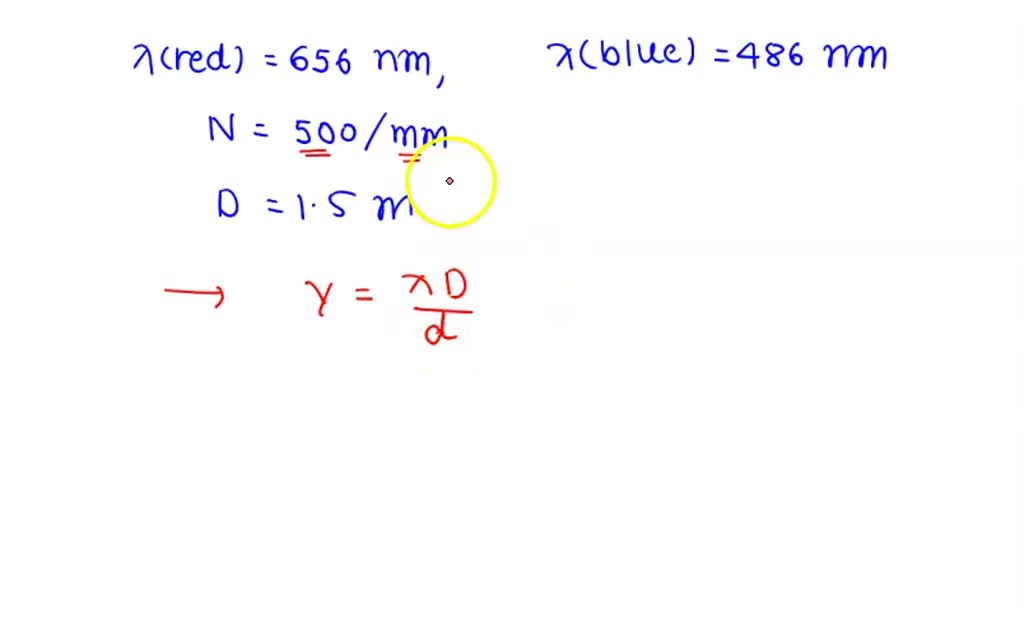 λ(red) = 656 nm, λ(blue) = 486 nm
N = 500/mm
D = 1.5 m
→ y = λD/d